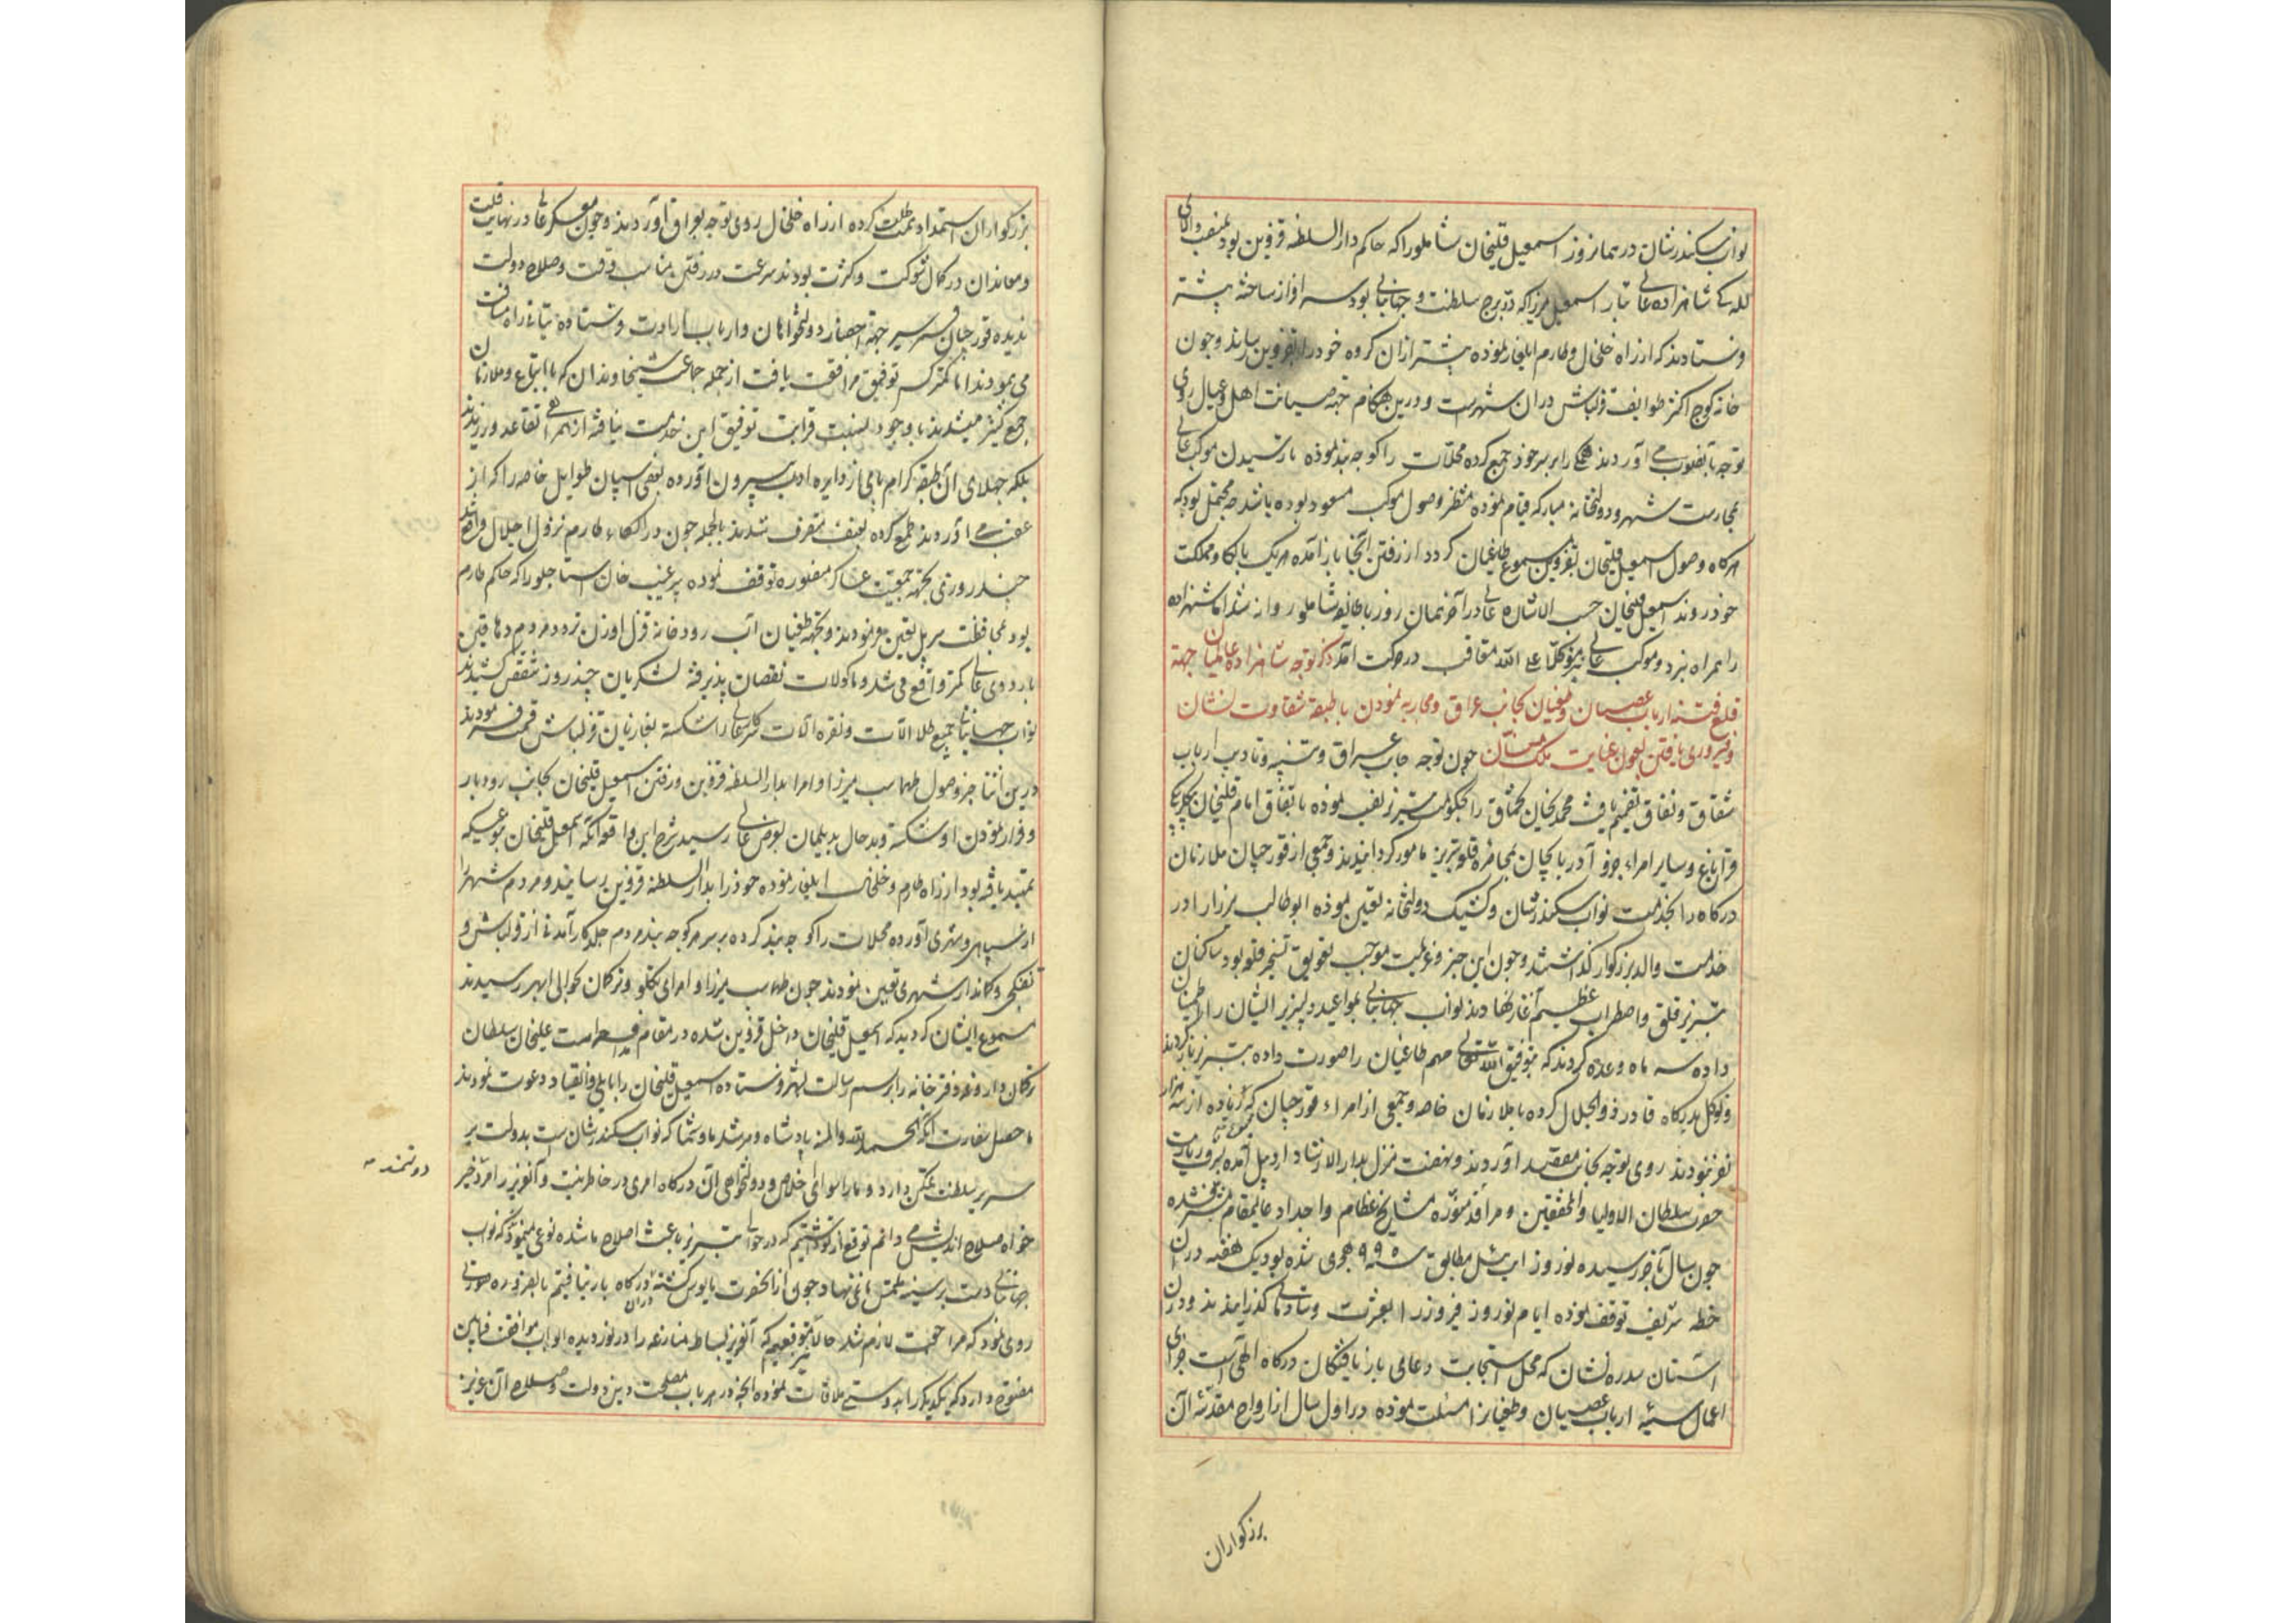 نواب سکندرشان در همانروز اسمعیل قلیخان شاملو را که حاکم دار السلطنه قزوین بود بمنصب والای
للـه کی شاهزاده عالی تبار اسمعیل میرزا که در برج سلطنت و جهانبانی بود سرافراز ساخته پیشتر
فرستادند که از راه خلخال و طارم ایلغار نموده پیشتر از ان کروه خود را بقزوین رساند و چون
خانه کوچ اکثر طوایف قزلباش در ان شهرست و درین هنکام جهة صیانت اهل و عیال روی
توجه بآنصوب می آورند همکی را بر سر خود جمع کرده محلات را کوچه بند نموده تا رسیدن موکب عالی
بحارست شهر و دولتخانه مبارکه قیام نموده منتظر وصول موکب مسعود بوده باشد چه محتمل بود که
هرکاه وصول اسمعیل قلیخان بقزوین مسموع طاغیان کردد از رفتن انجا باز آمده هریک بالکا و مملکت
خود روند اسمعیل قلیخان حسب الاشاره عالی در آخر همان روز با طایفه شاملو روانه شد اما شاهزاده
را همراه نبرد و موکب عالی نیز متوکلا علی الله متعاقب در حرکت آمد ذکر توجه شاهزاده عالمیان جهة
قلع فتنه ارباب عصیان و طغیان بجانب عراق و محاربه نمودن با طبقه شقاوت نشان
و فیروزی یافتن بعون عنایت ملک منان چون توجه جانب عراق و تنبیه و تادیب ارباب
شقاق و نفاق تصمیم یافت محمد یخان تخماق را بحکومت تبریز نصب نموده باتفاق امام قلیخان بیکلربیکی
قراباغ و سایر امراء چخور و آذربایجان بمحاصره قلعه تبریز مامور کردانیدند و جمعی از قورچیان ملازمان
درکاه را بخدمت نواب سکندرشان و کشیک دولتخانه تعیین نموده ابوطالب میرزا را در
خدمت والد بزرکوار کذاشتند و چون این خبر و عزیمت موجب تعویق تسخیر قلعه بود ساکنان
تبریز قلق و اضطراب عظیم آغاز نهادند نواب جهانبانی بمواعید دلپذیر ایشان را اطمینان
داده سه ماه وعده کردند که بتوفیق الله تعالی مهم طاغیان را صورت داده به تبریز باز کردند
و توکل بدرکاه قادر ذو الجلال کرده با ملازمان خاصه و جمعی از امراء و قورچیان که مجموع زیاده از سه هزار
نفر نبودند روی توجه بجانب مقصد آوردند و بهفت منزل بدار الارشاد اردبیل آمده بزیارت
حضرت سلطان الاولیا و المحققین و مراقد منوره مشایخ عظام و اجداد عالیمقام مشرف شده
چون سال بآخر رسیده نوروز ایت ئیل مطابق سنه ۹۹۵ هجری شده بود یک هفته در ان
خطه شریف توقف نموده ایام نوروز فیروز را بعشرت و شادمانی کذرانیدند و در ان
آستان سدره نشان که محل استجابت دعای باریافتکان درکاه الهی است جزای
اعمال سیئه ارباب عصیان و طغیان را مسئلت نموده در اول سال از ارواح مقدسه آن
بزرکواران
بزرکواران استمداد همت طلب کرده از راه خلخال روی توجه بعراق آوردند و چون عسکر عالی در نهایت قلت
و معاندان در کمال شوکت و کثرت بودند سرعت در رفتن مناسب وقت و صلاح دولت
ندیده قورچیان سریع السیر جهة احضار دولتخواهان و ارباب ارادت فرستاده بتانی راه مسافت
می پیمودند اما کمتر کسی توفیق مرافقت یافت از جمله جماعت شیخاوندان که با اتباع و ملازمان
جمع کثیر میشدند باوجود نسبت قرابت توفیق این خدمت نیافته از همراهی تقاعد ورزیدند
بلکه جهلای آن طبقه کرام پای از دایره ادب بیرون آورده بعضی اسپان طوایل خاصه را که از
عقب می آوردند طمع کرده بعنف متصرف شدند بالجمله چون در الکاء طارم نزول اجلال واقع شد
چند روزی بجهة جمعیت عساکر منصوره توقف نموده پیر غیب خان استاجلو را که حاکم طارم
بود بمحافظت سر پل تعیین فرمودند و بجهة طغیان آب رودخانه قزل اوزن تردد مردم دهاقین
باردوی عالی کمتر واقع می شد و ماکولات نقصان پذیرفته لشکریان چند روز مشقت کشیدند
نواب جهانبانی جمیع طلا آلات و نقره آلات سرکار عالی را شکسته بغازیان قزلباش قسمت فرمودند
درین اثنا خبر وصول طهماسب میرزا و امرا بدار السلطنه قزوین و رفتن اسمعیل قلیخان بجانب رودبار
و فرار نمودن او شکسته و بد حال بدیلمان بعرض عالی رسید شرح این واقعه آنکه اسمعیل قلیخان بنوعیکه
تمهید یافته بود از راه طارم و خلخال ایلغار نموده خود را بدار السلطنه قزوین رسانید و مردم شهر را
از سپاهی و شهری آورده محلات را کوچه بند کرده بر سر هر کوچه بند مردم جلد کارآمدنی از قزلباش و
تفنکچی و کماندار شهری تعیین نمودند چون طهماسب میرزا و امرای تکلو و ترکمان بحوالی ابهر رسیدند
مسموع ایشان کردید که اسمعیل قلیخان داخل قزوین شده در مقام قلعه داریست علیخان سلطان
ترکمان داروغه دفترخانه را برسم رسالت بشهر فرستاده اسمعیل قلیخان را بایلی و انقیاد دعوت نمودند
ماحصل سفارت آنکه الحمد لله و المنه پادشاه و مرشد ما و شما که نواب سکندرشان است بدولت بر
سریر سلطنت متمکن دارد و ما را سوای اخلاص و دولتخواهی آن درکاه امری در خاطر نیست و آنعزیز را مرد خیر
دولتمند
خواه صلاح اندیش می دانیم توقع از تو داشتیم که در حوالی تبریز باعث اصلاح ما شده نوعی مینمود که نواب
جهانبانی دست بر سینه ملتمس ما نمی نهاد چون از آنحضرت مایوس کشته در آن درکاه بار نیافتیم بالضروره صورتی
روی نمود که مراجعت لازم شد حالا نیز متوقعیم که آنعزیز بساط منازعه را در نوردیده ابواب موافقت فیمابین
مفتوح دارد که یکدیکر را بدوستی ملاقات نموده آنچه در هر باب مصلحت دین و دولت و صلاح آن عزیز